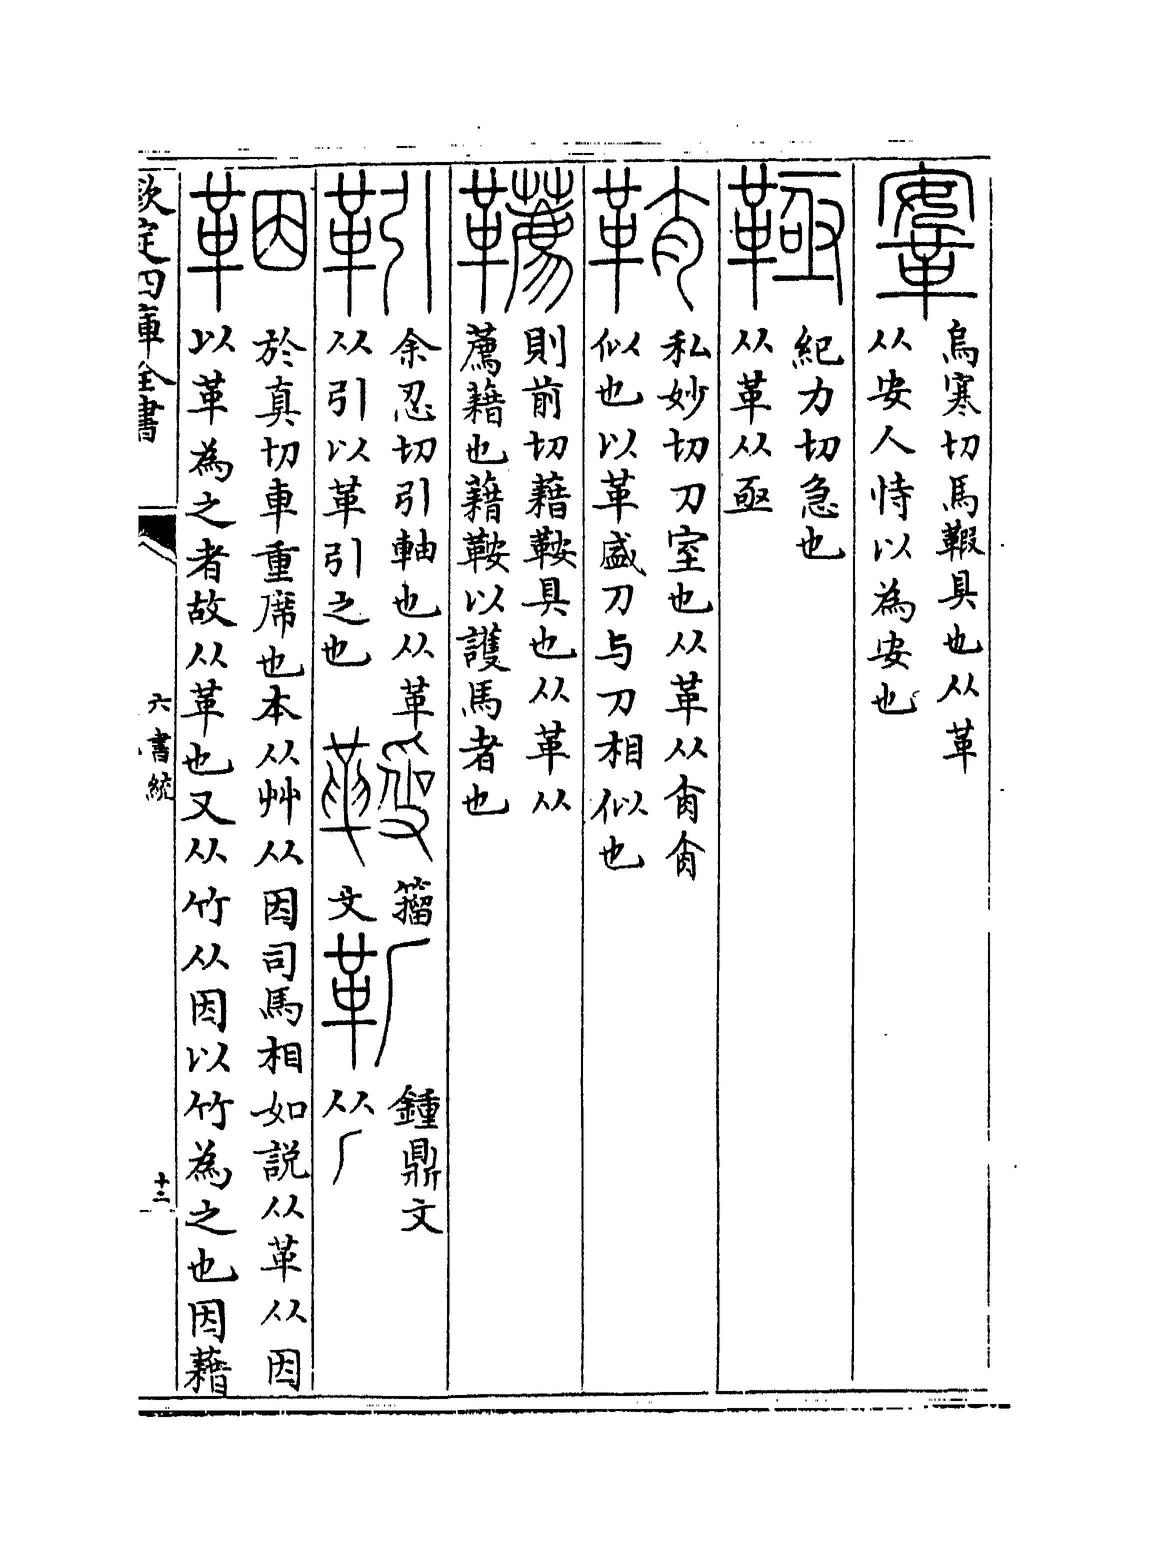 鞌
烏寒切馬鞁具也从革
从安人恃以為安也
䩯
紀力切急也
从革从亟
鞘
私妙切刀室也从革从肻肻
似也以革盛刀与刀相似也
韉
則前切藉鞍具也从革从
薦藉也藉鞍以護馬者也
靷
余忍切引軸也从革
从引以革引之也
籀
文
鍾鼎文
从厂
鞇
於真切車重席也本从艸从因司馬相如説从革从因
以革為之者故从革也又从竹从因以竹為之也因藉
欽定四庫全書
六書統
十三